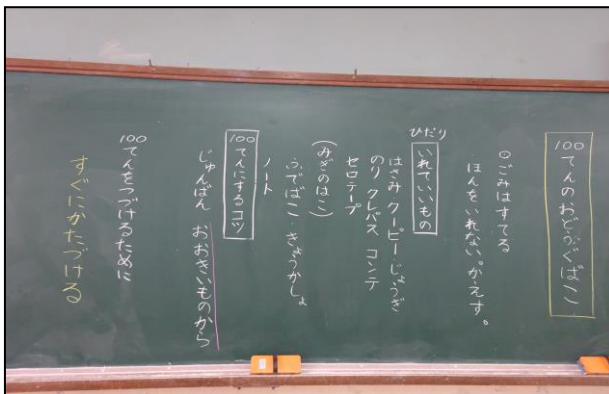 100てんのおどうぐばこ
○ごみはすてる
ほんをいれない。かえす。
ひだり
いれていいもの
はさみ クーピー じょうぎ
のり クレパス コンテ
セロテープ
(みぎのはこ)
ふでばこ・きょうかしょ
ノート
100てんにするコツ
じゅんばん おおきいものから
100てんをつづけるために
すぐにかたづける